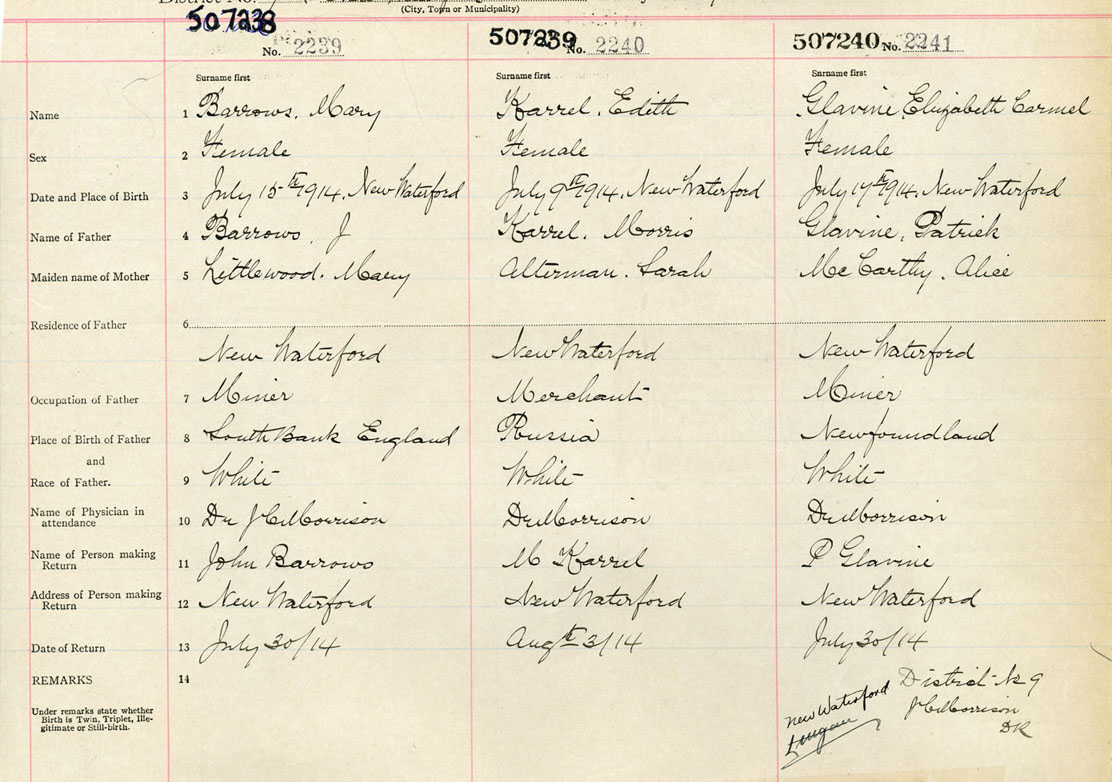 District No.
(City, Town or Municipality)
507238 No. 2239 507239 No. 2240 507240 No. 2241
Surname first Surname first Surname first
Name 1 Barrows, Mary Karrel, Edith Glavine, Elizabeth Carmel
Sex 2 Female Female Female
Date and Place of Birth 3 July 15th 1914, New Waterford July 9th 1914, New Waterford July 17th 1914, New Waterford
Name of Father 4 Barrows, J Karrel, Morris Glavine, Patrick
Maiden name of Mother 5 Littlewood, Mary Alterman, Sarah McCarthy, Alice
Residence of Father 6
New Waterford New Waterford New Waterford
Occupation of Father 7 Miner Merchant Miner
Place of Birth of Father 8 South Bank England Russia Newfoundland
and
Race of Father. 9 White White White
Name of Physician in
attendance 10 Dr J C Morrison Dr Morrison Dr Morrison
Name of Person making
Return 11 John Barrows M Karrel P Glavine
Address of Person making
Return 12 New Waterford New Waterford New Waterford
Date of Return 13 July 30/14 Augt 3/14 July 30/14
REMARKS 14 District No 9
New Waterford J C Morrison
DR
Under remarks state whether
Birth is Twin, Triplet, Ille-
gitimate or Still-birth.